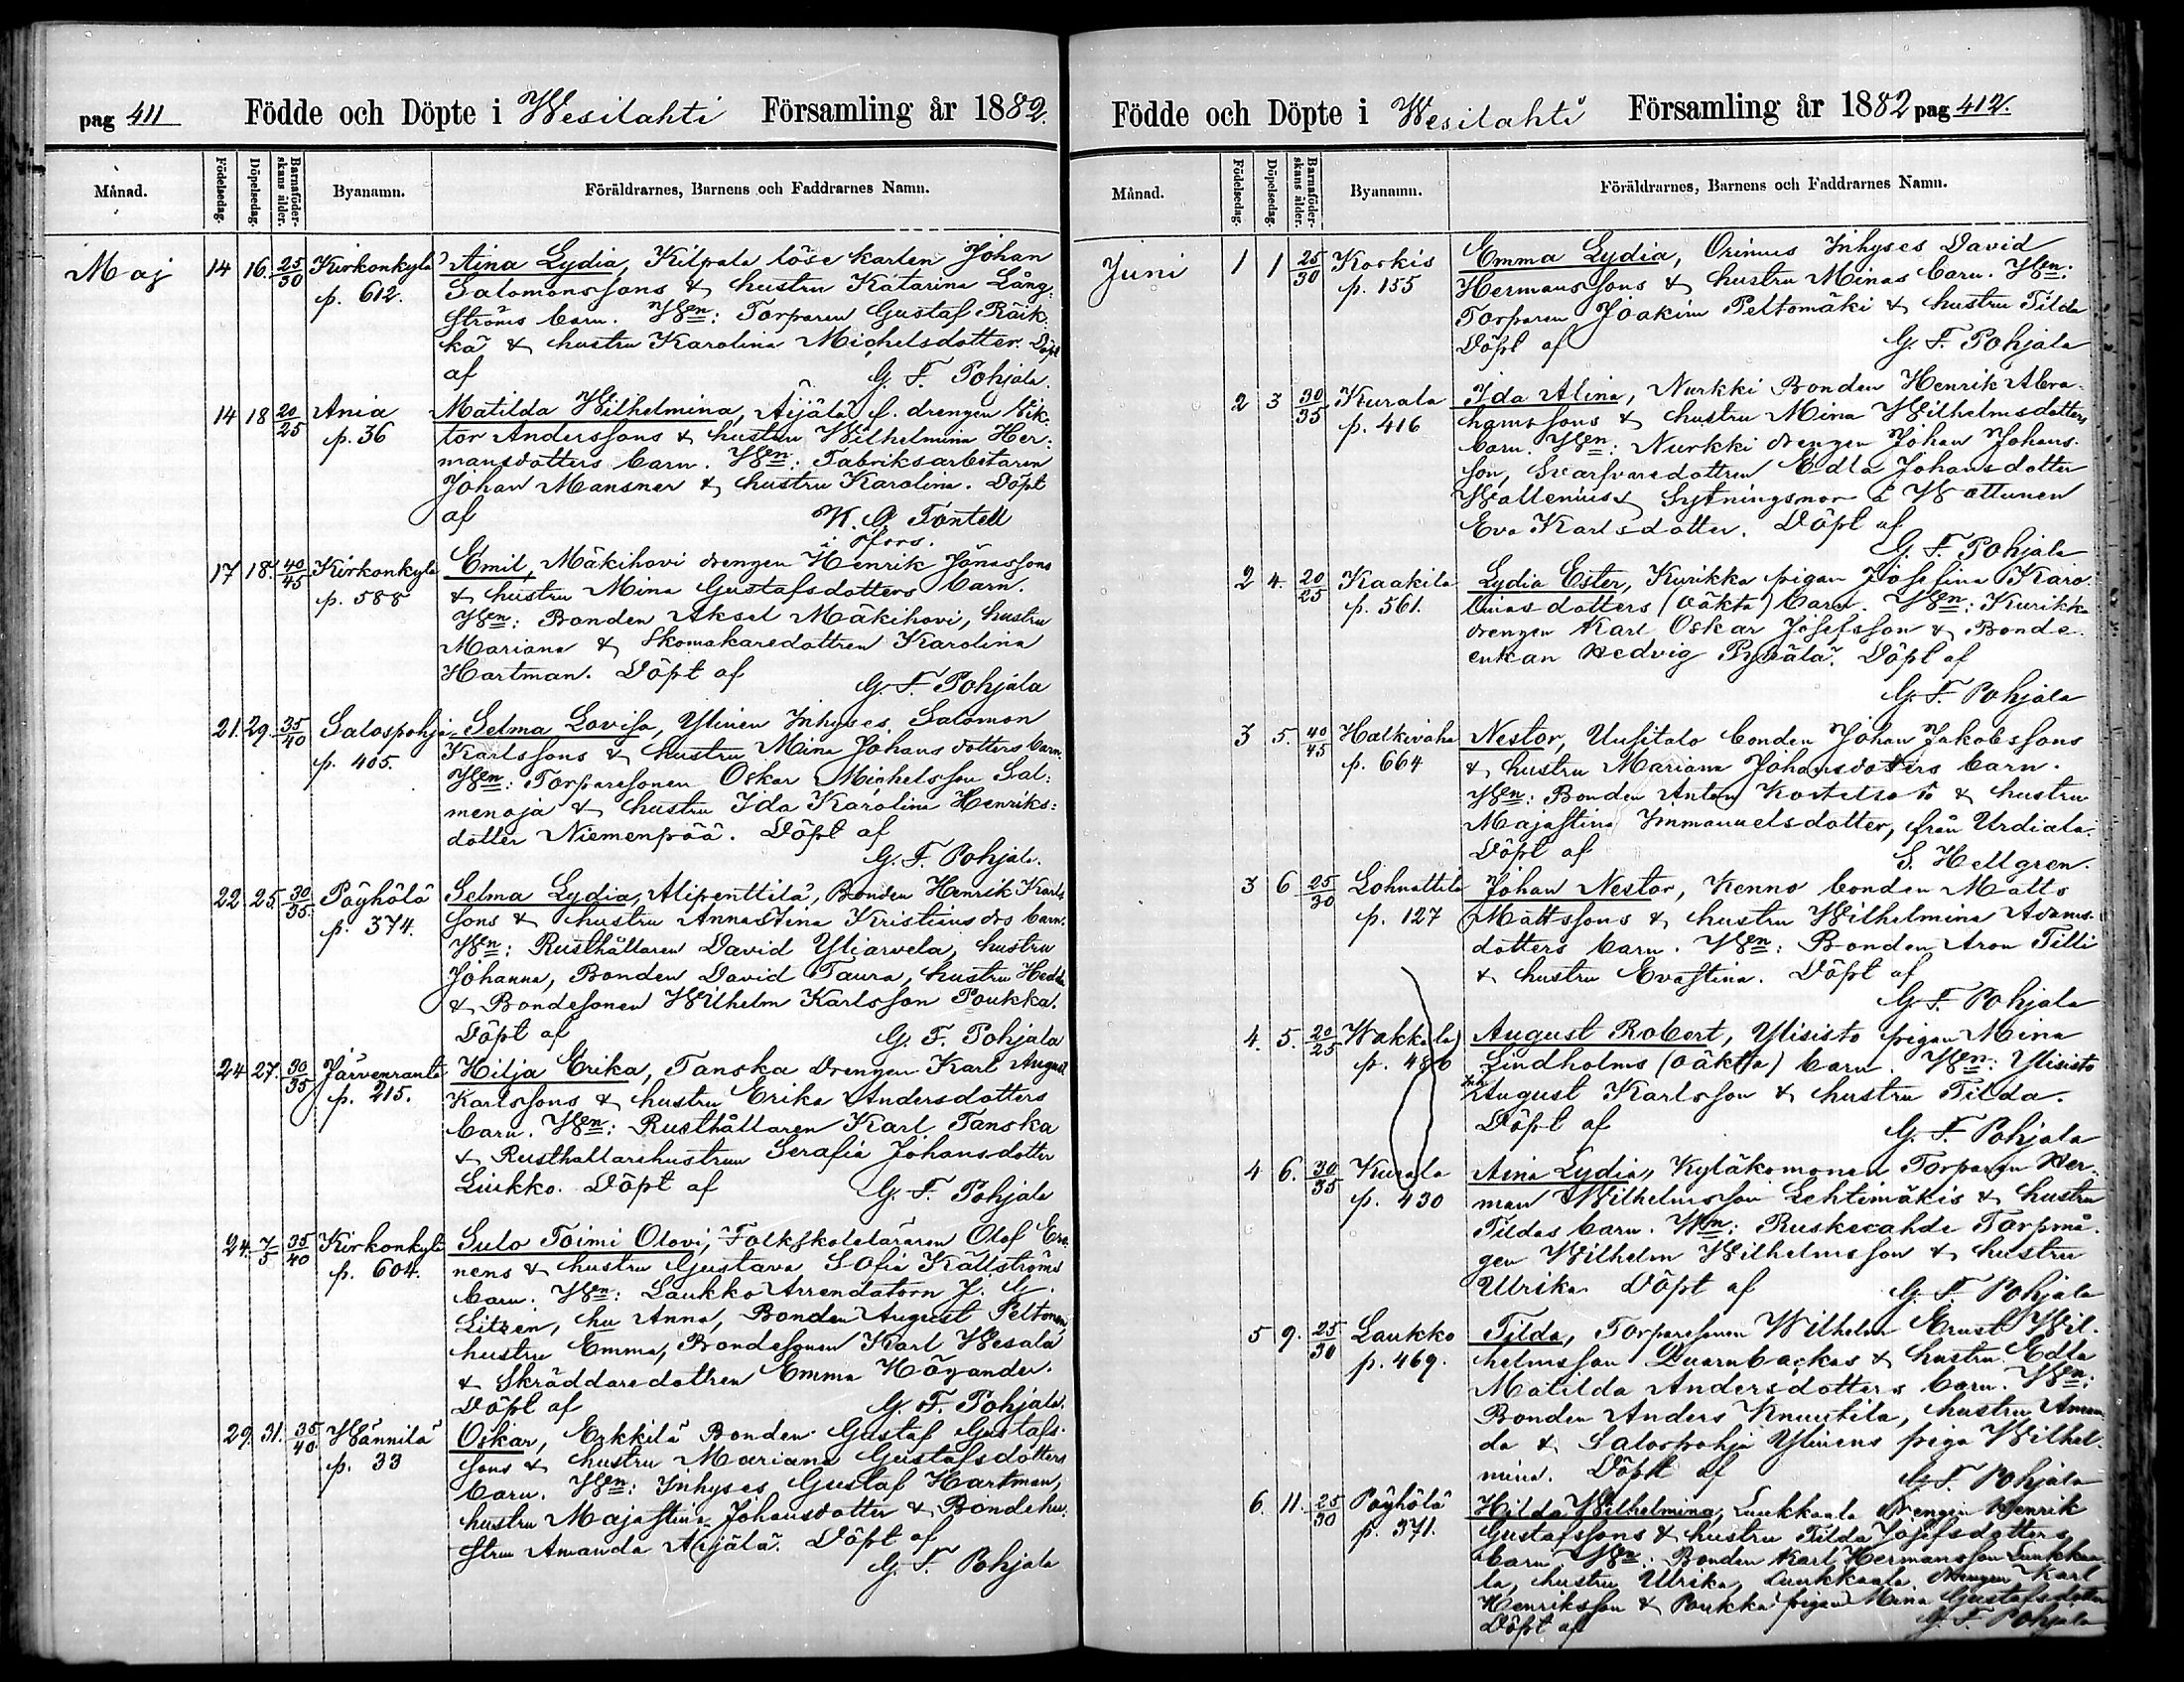 pag 411 Födde och Döpte i Wesilahti Församling år 1882.
Månad. Födelsedag. Döpelsedag. Barnaföder-skans ålder. Byanamn. Föräldrarnes, Barnens och Faddrarnes Namn.
Maj 14 16. 25/30 Kirkonkylä Aina Lydia, Kilpala löse karlen Johan
p. 612. Salomonssons & hustru Katarina Lång-
ströms barn. Wn: Torparen Gustaf Räik-
kä & hustru Karolina Michelsdotter. Döpt
af G. F. Pohjala.
14 18 20/25 Ania Matilda Wilhelmina, Äijälä f. drengen Vik-
p. 36 tor Anderssons & hustru Wilhelmina Her-
mansdotters barn. Wn: Fabriksarbetaren
Johan Mansner & hustru Karolina. Döpt
af K. O. Fontell
i Tfors.
17 18. 40/45 Kirkonkylä Emil, Mäkihovi drengen Henrik Jonassons
p. 588 & hustru Mina Gustafsdotters barn.
Wn: Bonden Aksel Mäkihovi, hustru
Mariana & Skomakaredottren Karolina
Hartman. Döpt af
G. F. Pohjala
21. 29. 35/40 Salospohja Selma Lovisa, Ylinen Inhyses Salomon
p. 405. Karlssons & hustru Mina Johansdotters barn.
Wn: Torparesonen Oskar Michelsson Sal-
menoja & hustru Ida Karolina Henriks-
dotter Niemenpää. Döpt af
G. F. Pohjala.
22 25 30/35. Pöyhölä Selma Lydia, Alipenttilä, Bonden Henrik Karls
p. 374. sons & hustru Annastina Kristians drs barn.
Wn: Rusthållaren David Yliarvela, hustru
Johanna, Bonden David Taura, hustru Hedda
& Bondesonen Wilhelm Karlsson Poukka.
Döpt af G. F. Pohjala
24 27. 30/35 Järvenranta Hilja Erika, Tanska drengen Karl August
p. 215. Karlssons & hustru Erika Andersdotters
barn. Wn: Rusthållaren Karl Tanska
& Rusthallarehustrun Serafia Johansdotter
Liukko. Döpt af G. F. Pohjala
24. 7/5 35/40 Kirkonkylä Sulo Toimi Olovi, Folkskoleläraren Olof Ero-
p. 604. nens & hustru Gustava Sofia Källströms
barn. Wn: Laukko Arrendatorn J. G.
Litzen, hu Anna, Bonden August Peltonen,
hustru Emma, Bondesonen Karl Wesala
& Skräddaredottren Emma Högander.
Döpt af G. F. Pohjala.
29. 31. 35/40. Wännilä Oskar, Erkkilä Bonden Gustaf Gustafs-
p. 33 sons & hustru Mariana Gustafsdotters
barn. Wn: Inhyses Gustaf Hartman,
hustru Majastina Johansdotter & Bondehu-
stru Amanda Äijälä. Döpt af
G. F. Pohjala
Födde och Döpte i Wesilahti Församling år 1882 pag 412.
Månad. Födelsedag. Döpelsedag. Barnaföder-skans ålder. Byanamn. Föräldrarnes, Barnens och Faddrarnes Namn.
Juni 1 1 25/30 Korkis Emma Lydia, Orinius Inhyses David
p. 155 Hermanssons & hustru Minas barn. Wn:
Torparen Joakim Peltomäki & hustru Tilda
Döpt af G. F. Pohjala
2 3 30/35 Kurala Ida Alina, Nurkki Bonden Henrik Abra-
p. 416 hamssons & hustru Mina Wilhelmsdotters
barn. Wn: Nurkki drengen Johan Johans-
son, Svarfvaredottren Edla Johansdotter
Wallenius & Sytningsmor å Wattunen
Eva Karlsdotter. Döpt af
G. F. Pohjala
2 4. 20/25 Kaakila Lydia Ester, Kurikka pigan Josefina Karo-
p. 561. linasdotters (oäkta) barn. Wn: Kurikka
drengen Karl Oskar Josefsson & Bonde-
enkan Hedvig Pyvälä. Döpt af
G. F. Pohjala
3 5. 40/45 Halkivaha Nestor, Uusitalo bonden Johan Jakobssons
p. 664 & hustru Mariana Johansdotters barn.
Wn: Bonden Anton & hustru
Majastina Immanuelsdotter, från Urdiala.
Döpt af S. Hellgren.
3 6 25/30 Lohnattila Johan Nestor, Kenno bonden Matts
p. 127 Mattssons & hustru Wilhelmina Adams-
dotters barn. Wn: Bonden Aron Tilli
& hustru Evastina. Döpt af
G. F. Pohjala
4. 5. 20/25 Wakkala August Robert, Ylisisto pigan Mina
p. 486 Lindholms (oäkta) barn. Wn: Ylisisto
August Karlsson & hustru Tilda.
Döpt af G. F. Pohjala
4 6. 30/35 Kurala Aina Lydia, Kyläkomonen Torparen Her-
p. 430 man Wilhelmsson Lehtimäkis & hustru
Tildas barn. Wn: Ruskeeahde Torpmå-
gen Wilhelm Wilhelmsson & hustru
Ulrika Döpt af G. F. Pohjala
5 9. 25/30 Laukko Tilda, Torparesonen Wilhelm Ernst Wil-
p. 469. helmsson Quarnbackas & hustru Edla
Matilda Andersdotters barn. Wn:
Bonden Anders Knuutila, hustru Aman-
da & Salospohja Ylinens piga Wilhel-
mina. Döpt af G. F. Pohjala
6. 11. 25/30 Pöyhölä Hilda Wilhelmina, Luukkaala drengen Henrik
p. 371. Gustafssons & hustru Tilda Josefsdotters
barn. Wn: Bonden Karl Hermansson Luukkaa-
la, hustru Ulrika, Luukkaala drengen Karl
Henriksson & Poukka pigan Mina Gustafsdotter
Döpt af G. F. Pohjala